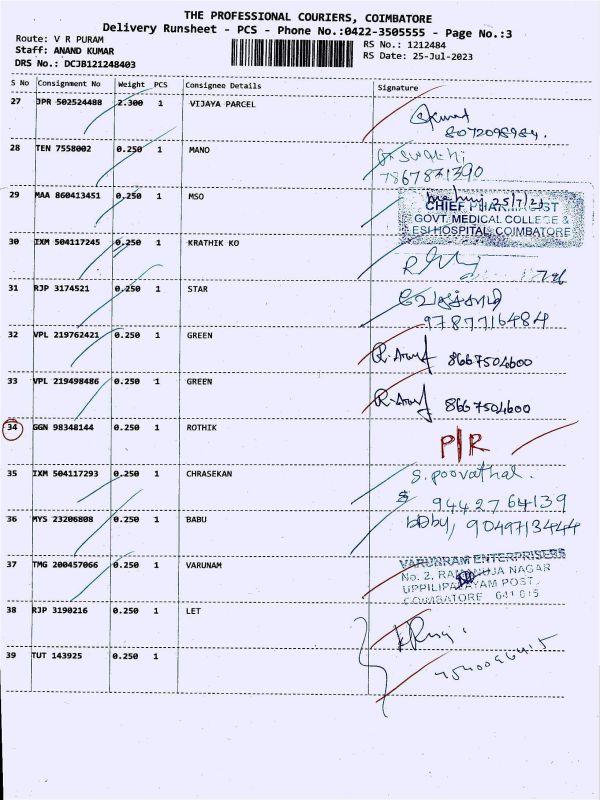 THE PROFESSIONAL COURIERS, COIMBATORE
Delivery Runsheet - PCS - Phone No.:0422-3505555 - Page No.:3
Route: V R PURAM
RS No.: 1212484
Staff: ANAND KUMAR
RS Date: 25-Jul-2023
DRS No.: DCJB121248403
S No Consignment No Weight PCS Consignee Details Signature
27 JPR 502524488 2.300 1 VIJAYA PARCEL
8072098984.
28 TEN 7558002 0.250 1 MANO
7867831390
29 MAA 860413451 0.250 1 MSO
25/7/23
CHIEF PHARMACIST
GOVT. MEDICAL COLLEGE &
ESI HOSPITAL, COIMBATORE
30 IXM 504117245 0.250 1 KRATHIK KO
31 RJP 3174521 0.250 1 STAR
9787716484
32 VPL 219762421 0.250 1 GREEN
8667504600
33 VPL 219498486 0.250 1 GREEN
8667504600
34 GGN 98348144 0.250 1 ROTHIK
P/R
35 IXM 504117293 0.250 1 CHRASEKAN
S. poovathal.
9442764139
36 MYS 23206808 0.250 1 BABU
9049713444
37 TMG 200457066 0.250 1 VARUNAM
VARUNRAM ENTERPRISERS
No. 2, RAMANUJA NAGAR
UPPILIPALAYAM POST,
COIMBATORE 641 015
38 RJP 3190216 0.250 1 LET
39 TUT 143925 0.250 1